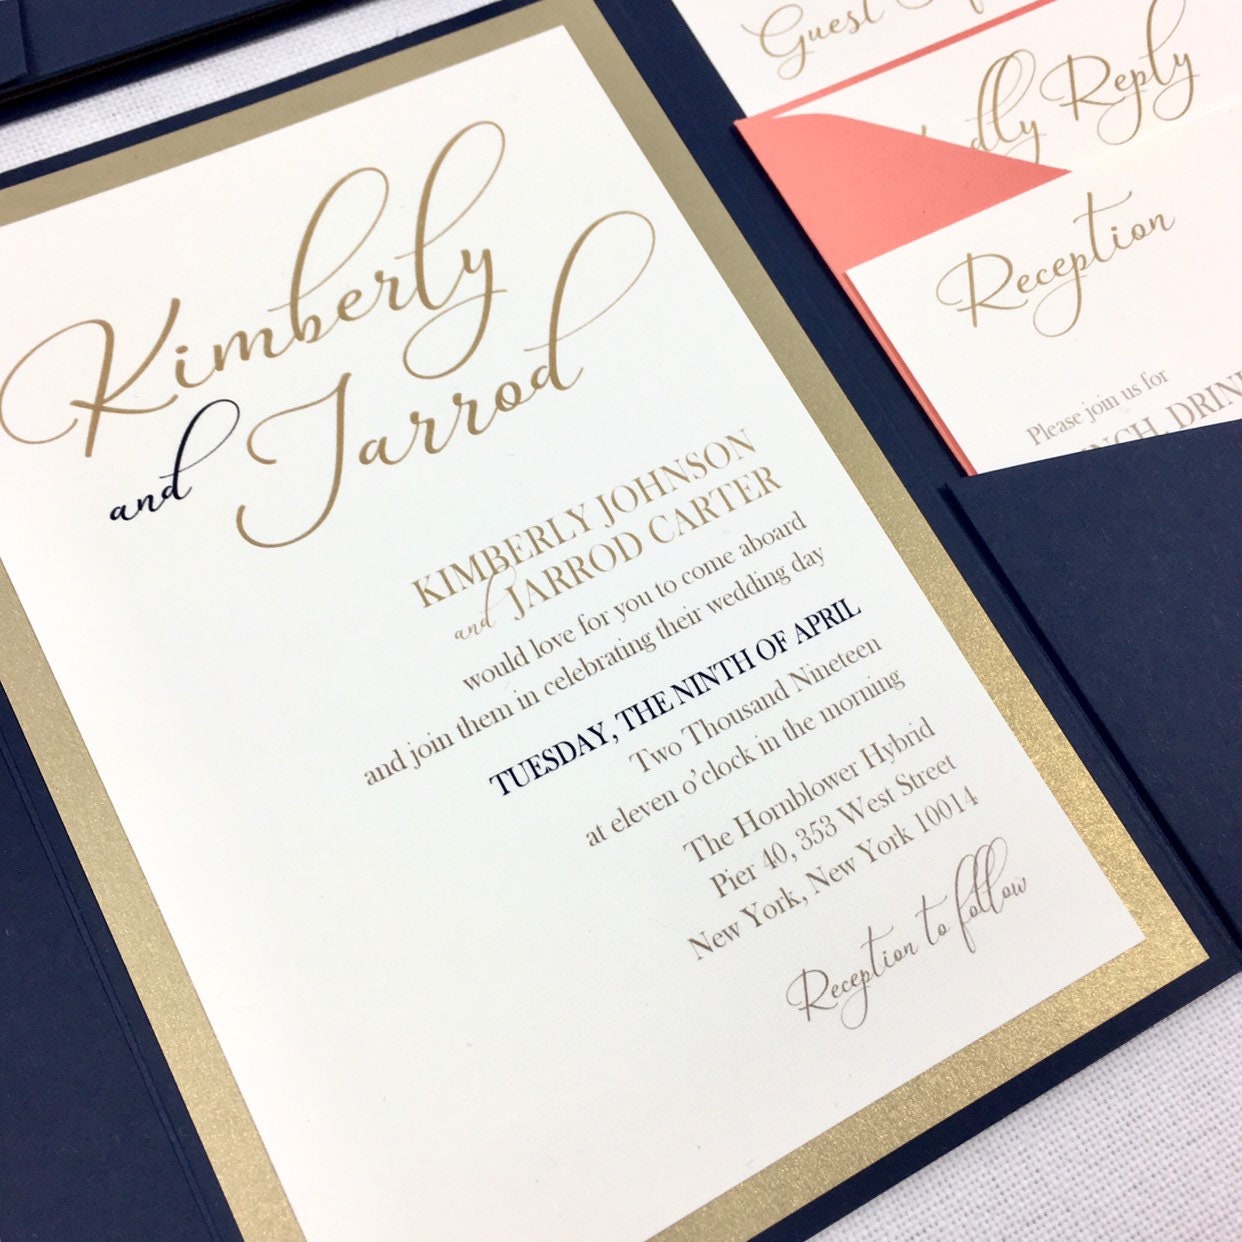 Kimberly
and Jarrod
KIMBERLY JOHNSON
and JARROD CARTER
would love for you to come aboard
and join them in celebrating their wedding day
TUESDAY, THE NINTH OF APRIL
Two Thousand Nineteen
at eleven o'clock in the morning
The Hornblower Hybrid
Pier 40, 353 West Street
New York, New York 10014
Reception to follow
Guest
Reply
Reception
Please join us for